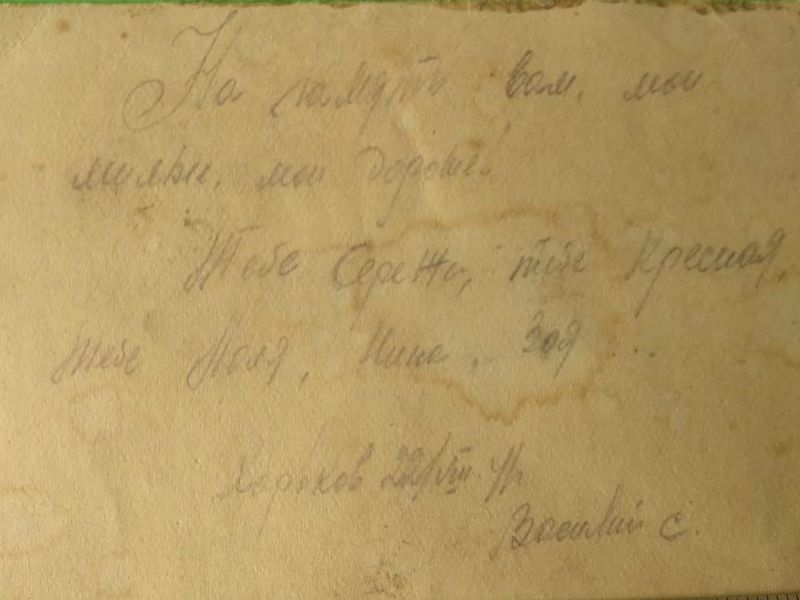 На память вам, мои
милые, мои дорогие!
Тебе Сережа, тебе Кресная,
тебе Поля, Нина, Зоя ...
Харьков 22/VIII
Василий С.